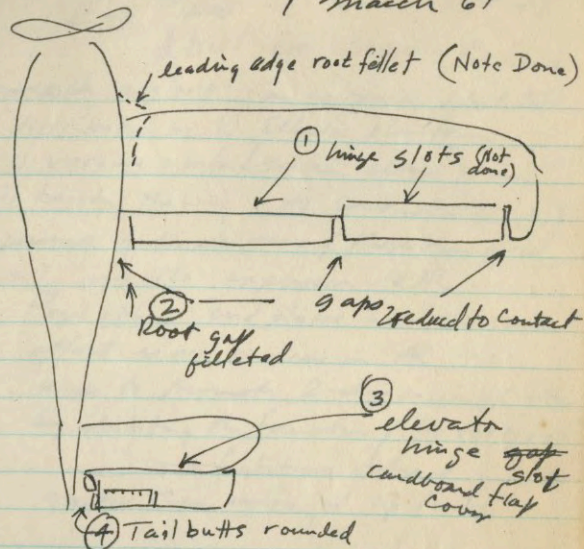 1 March 61
leading edge root fillet (Note Done)
① hinge slots (Not done)
② Root gap filleted
gaps reduced to contact
③ elevator
hinge gap slot
cardboard flap
cover
④ Tail butts rounded